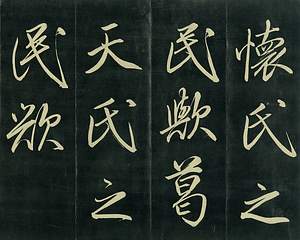 懷氏之
民歟葛
天氏之
民歟